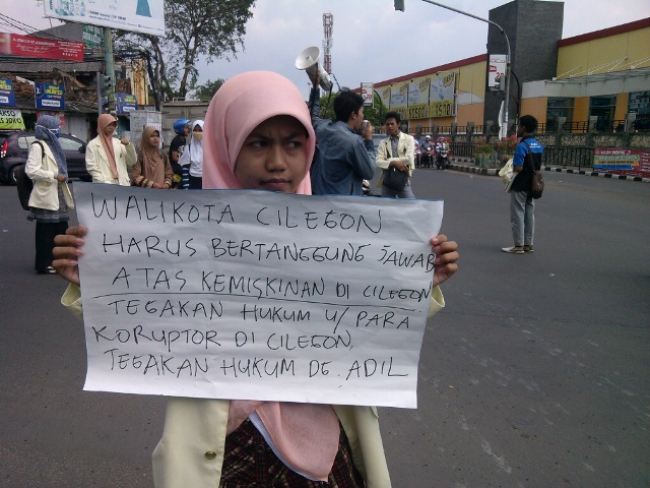 WALIKOTA CILEGON
HARUS BERTANGGUNG JAWAB
ATAS KEMISKINAN DI CILEGON
TEGAKAN HUKUM U/ PARA
KORUPTOR DI CILEGON.
TEGAKAN HUKUM DG. ADIL